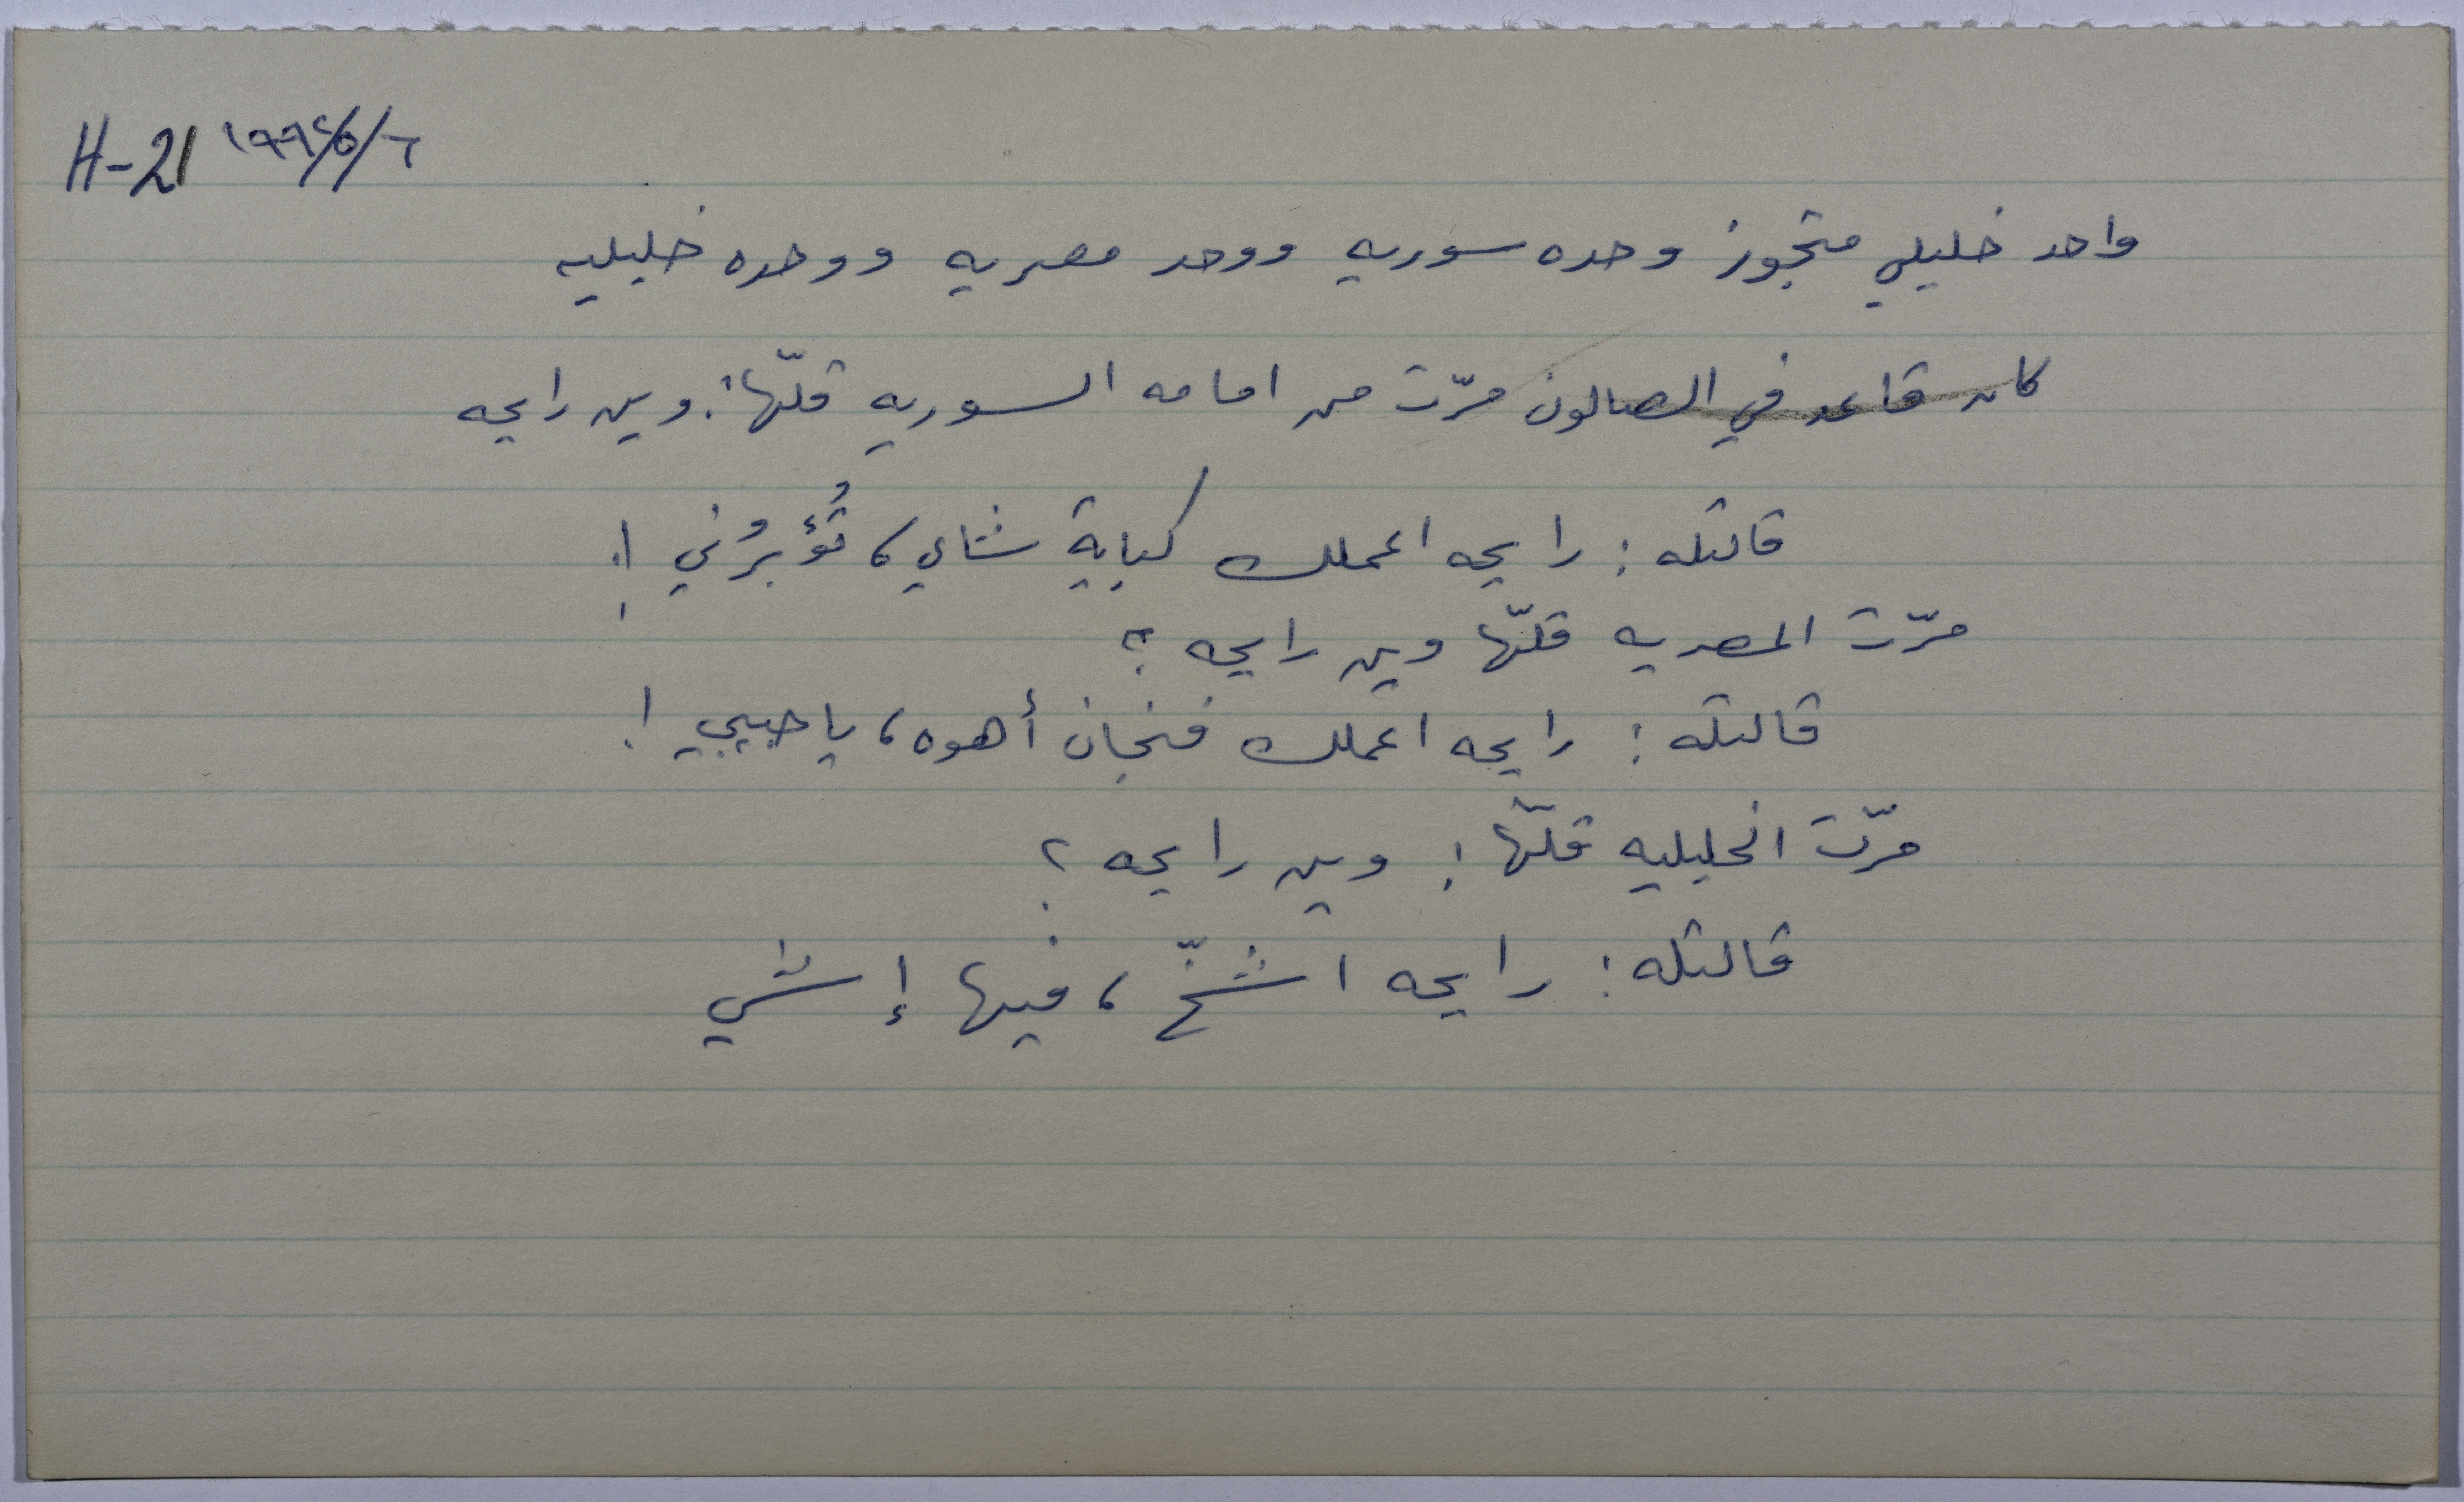 H-21 ١٩٩٤/٥/٦
واحد خليلي متجوز وحده سوريه ووحد مصريه ووحده خليليه
كان قاعد في الصالون مرّت من امامه السوريه قلّها: وين رايحه
قالتله: رايحه اعملك كباية شاي، تُؤبرُني !
مرّت المصريه قلّها وين رايحه ؟
قالتله: رايحه اعملك فنجان أهوه، يا حبيبي !
مرّت الخليليه قلّها: وين رايحه ؟
قالتله: رايحه اشخّ، فيها إشي